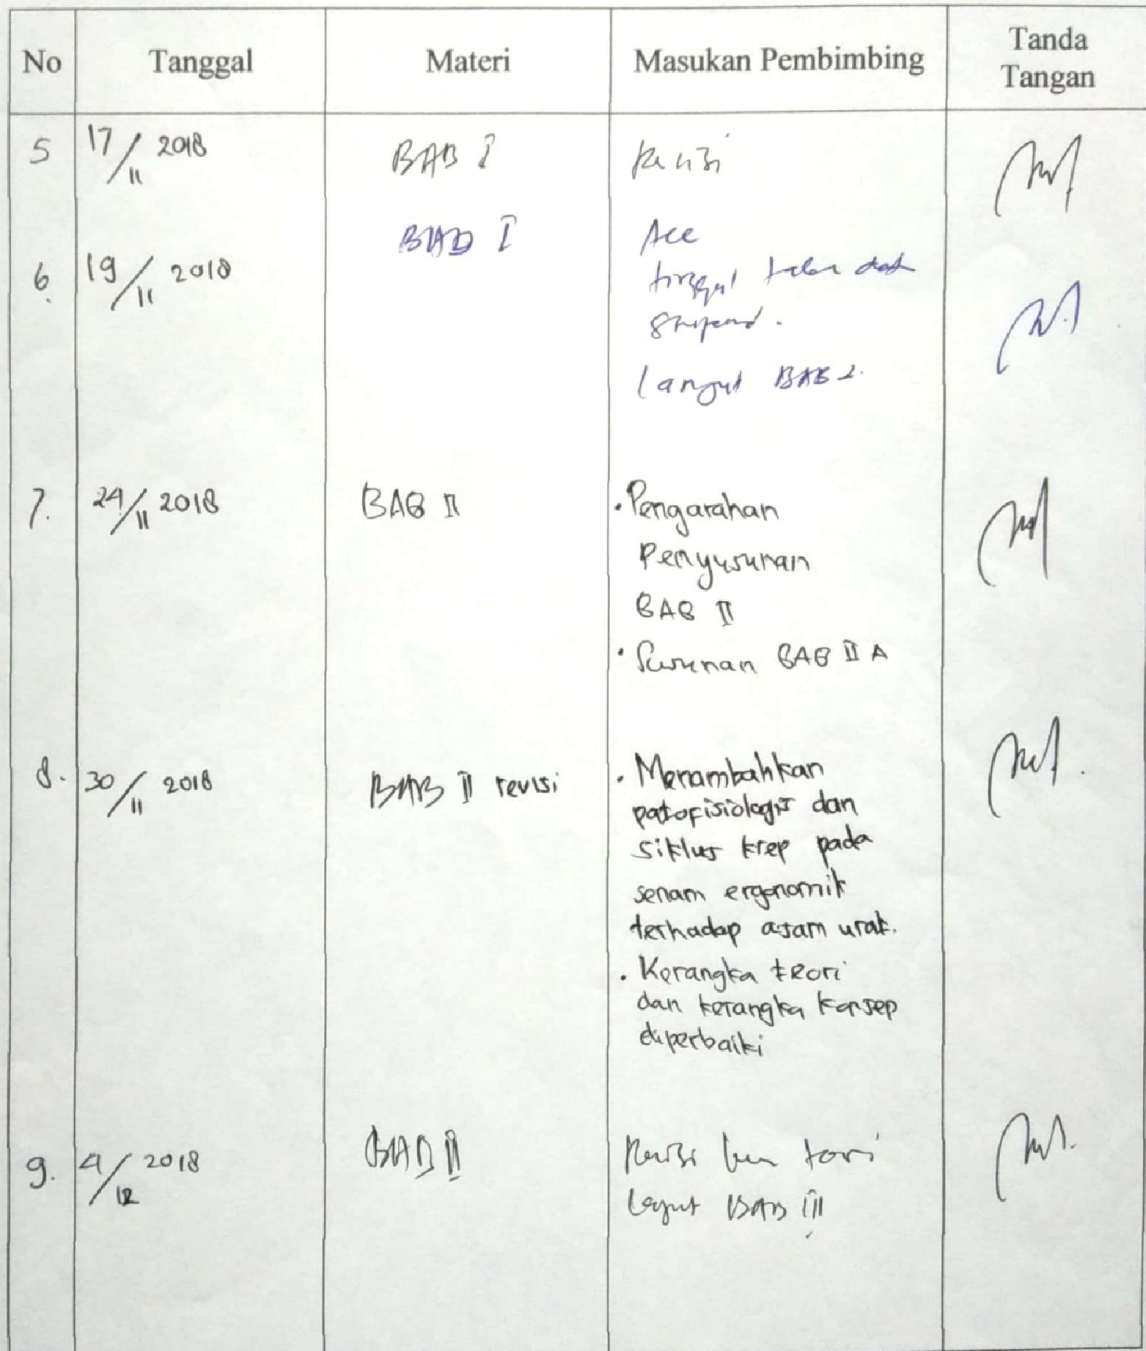 No Tanggal Materi Masukan Pembimbing Tanda Tangan
5 17/11 2018 BAB I Revisi
6. 19/11 2018 BAB I Acc
tinggal
Langut BAB 2.
7. 24/11 2018 BAB II • Pengarahan
Penyusunan
BAB II
• Susunan BAB II A
8. 30/11 2018 BAB II revisi • Menambahkan
patofisiologis dan
siklus krep pada
senam ergonomik
terhadap asam urat.
• Kerangka teori
dan kerangka konsep
diperbaiki
9. 4/12 2018 BAB II Revisi
BAB III